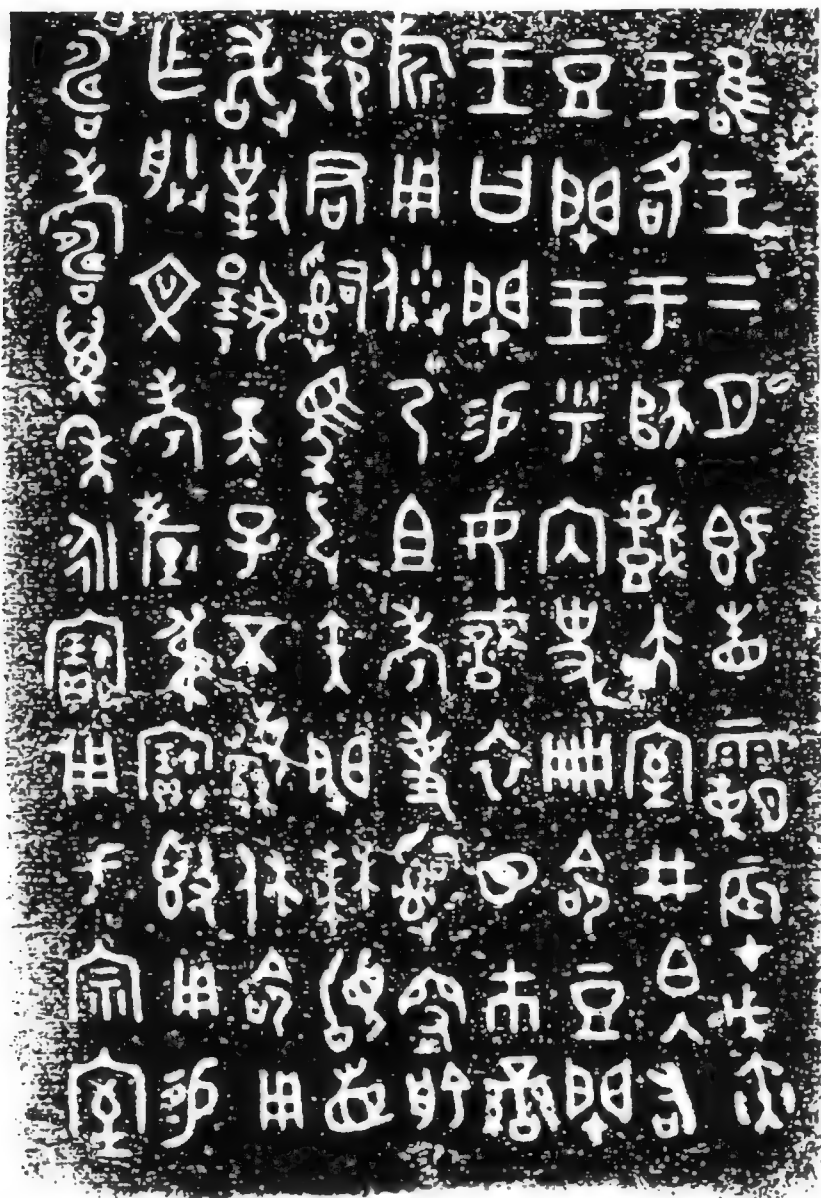 隹王二月既眚霸辰才戊寅
王各于師戲大室井白入右
豆閉王乎內史冊命豆閉
王曰閉易女戠衣巿䜌
旂用乃且考事𤔲㝨艅
邦君𤔲馬弓矢閉拜𩒨首
敢對揚天子不顯休命用
乍朕文考釐弔寶𣪘用易
𠷎壽萬年永寶用于宗室